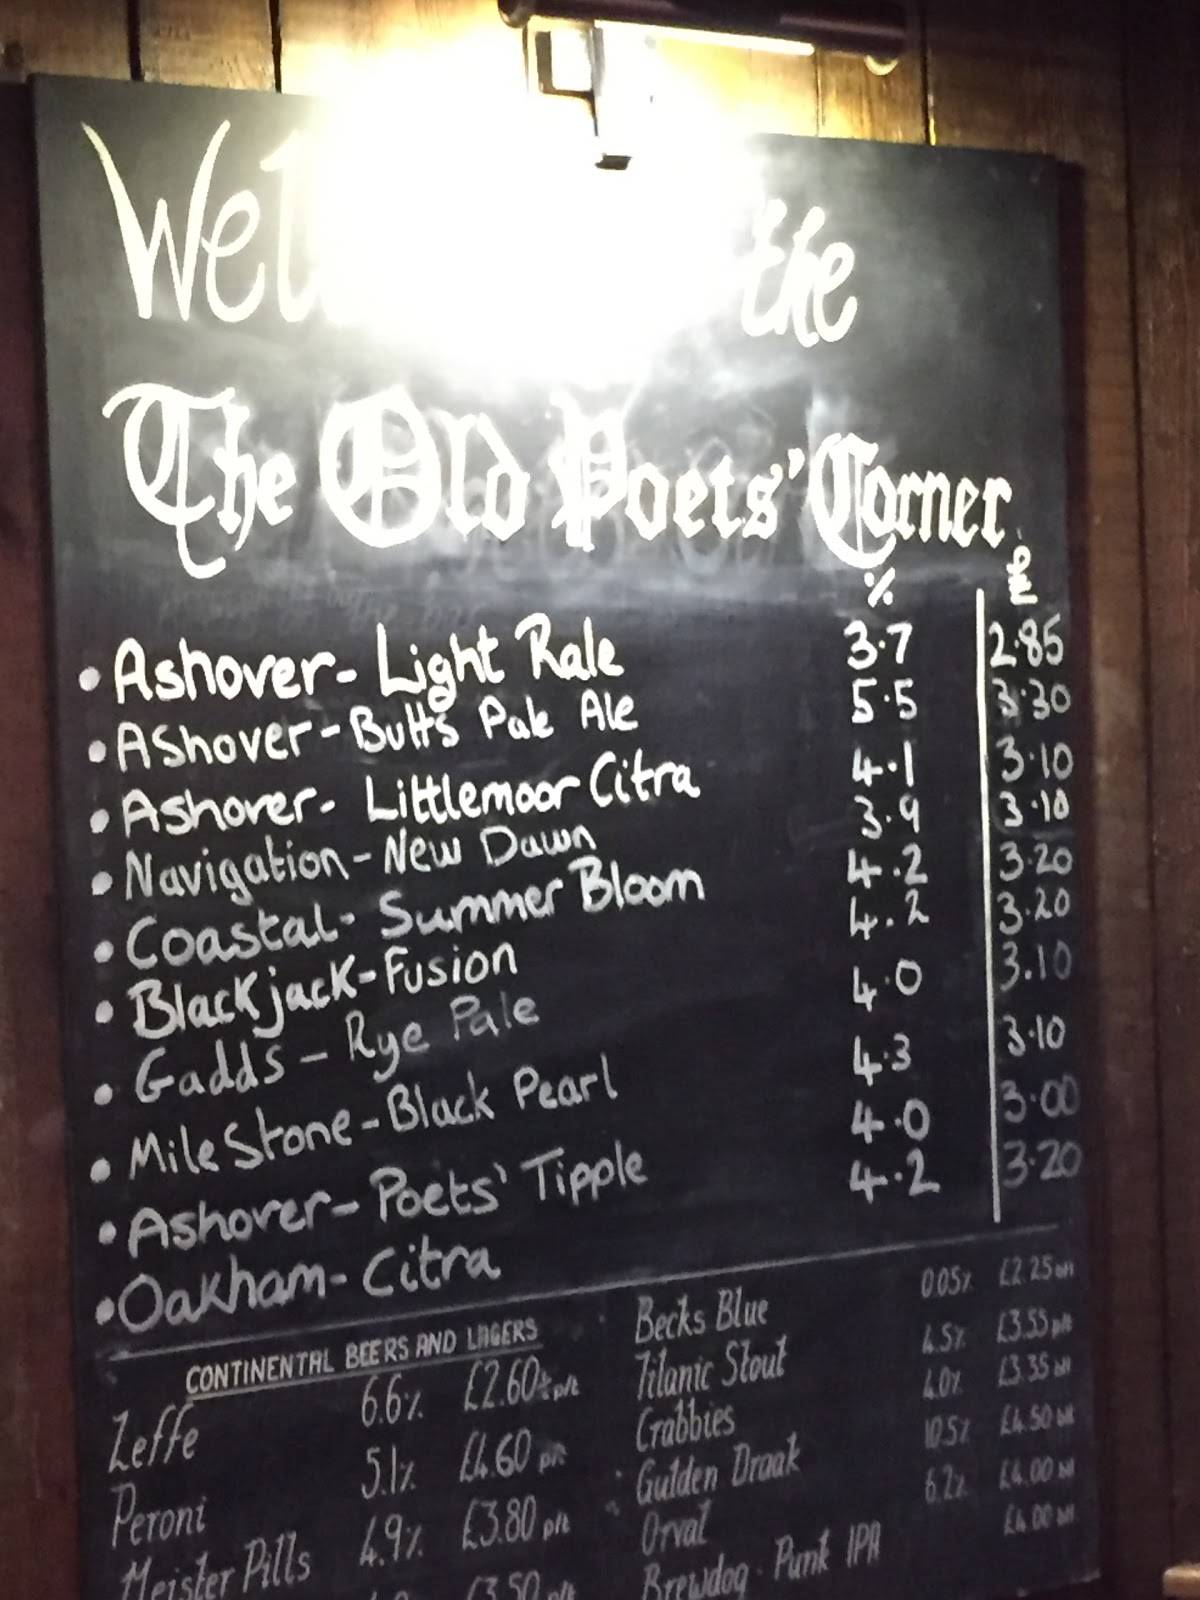 Wel the
The Old Poets' Corner
% £
• Ashover- Light Rale 3.7 2.85
• Ashover- Butts Pale Ale 5.5 3.30
• Ashover- Littlemoor Citra 4.1 3.10
• Navigation- New Dawn 3.9 3.10
• Coastal- Summer Bloom 4.2 3.20
• Blackjack- Fusion 4.2 3.20
• Gadds - Rye Pale 4.0 3.10
• MileStone- Black Pearl 4.3 3.10
• Ashover- Poets' Tipple 4.0 3.00
• Oakham- Citra 4.2 3.20
CONTINENTAL BEERS AND LAGERS
Leffe 6.6% £2.60
Peroni 5.1% £4.60 pnt
Meister Pills 4.9% £3.80 pnt
£3.50 pnt
Becks Blue 0.05% £2.25 btl
Titanic Stout 4.5% £3.55 pnt
Crabbies 4.0% £3.35 btl
Gulden Draak 10.5% £4.50 btl
Orval 6.2% £4.00 btl
Brewdog - Punk IPA £4.00 btl